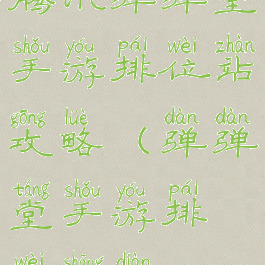 弹弹堂
shǒu yóu pái wèi zhàn
手游排位站
gōng lüè dàn dàn
攻略（弹弹
táng shǒu yóu pái
堂手游排
wèi shāng diàn